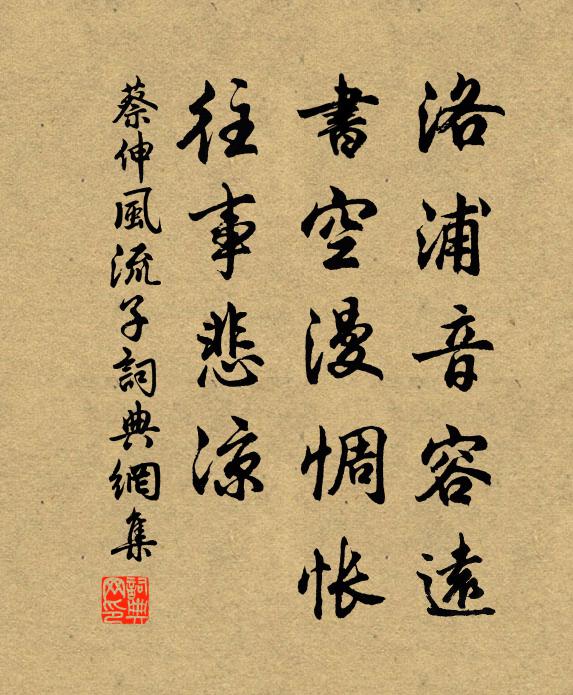 洛浦音容遠
書空漫惆悵
往事悲涼
蔡伸風流子詞典網集
詞典网印